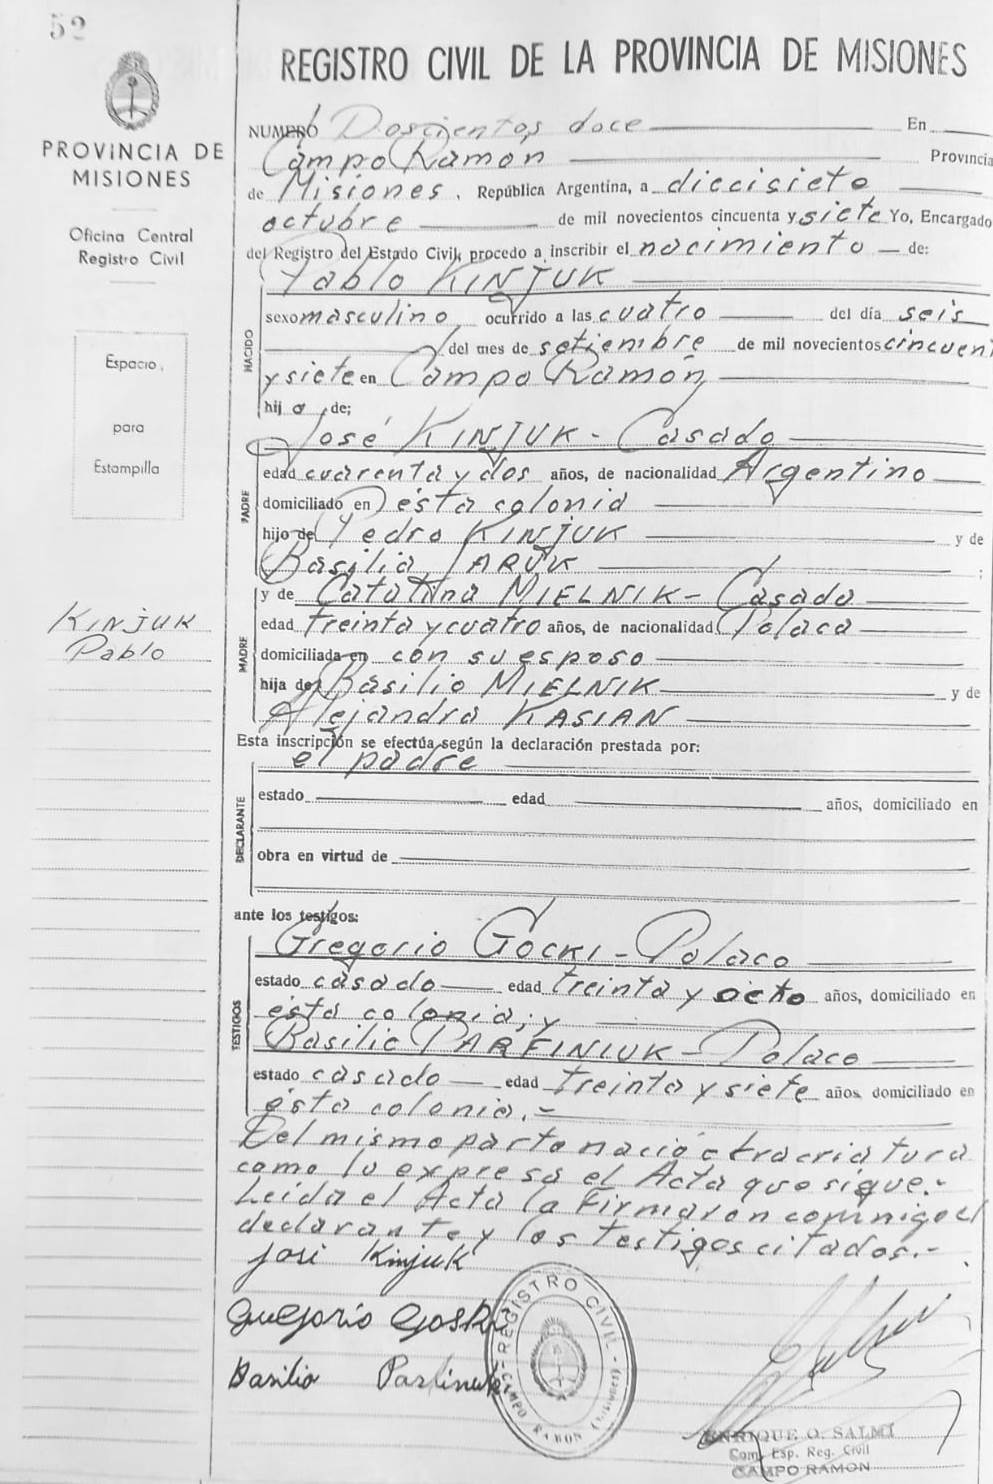 52
REGISTRO CIVIL DE LA PROVINCIA DE MISIONES
PROVINCIA DE
MISIONES
Oficina Central
Registro Civil
Espacio
para
Estampilla
KINJUK
Pablo
NUMERO Doscientos doce En
Campo Ramón Provincia
de Misiones. República Argentina, a diecisiete
octubre de mil novecientos cincuenta y siete Yo, Encargado
del Registro del Estado Civil, procedo a inscribir el nacimiento de:
Pablo KINJUK
NACIDO
sexo masculino ocurrido a las cuatro del día seis
del mes de setiembre de mil novecientos cincuen
y siete en Campo Ramón
hij o de;
José KINJUK - Casado
PADRE
edad cuarenta y dos años, de nacionalidad Argentino
domiciliado en ésta colonia
hijo de Pedro KINJUK y de
Basilia JARUK ;
y de Catalina MIELNIK - Casada
MADRE
edad treinta y cuatro años, de nacionalidad Polaca
domiciliada en con su esposo
hija de Basilio MIELNIK y de
Alejandra KASIAN
Esta inscripción se efectúa según la declaración prestada por:
el padre
DECLARANTE
estado edad años, domiciliado en
obra en virtud de
ante los testigos:
Gregorio GOCKI - Polaco
TESTIGOS
estado casado edad treinta y ocho años, domiciliado en
ésta colonia; y
Basilio PARFINIUK - Polaco
estado casado edad treinta y siete años, domiciliado en
ésta colonia.-
Del mismo parto nació otra criatura
como lo expresa el Acta que sigue.-
Leída el Acta la Firmaron conmigo el
declarante y los testigos citados.-
José Kinjuk
Guegorio Goski
Basilio Parfiniuk
REGISTRO CIVIL - CAMPO RAMON (Misiones)
ENRIQUE O. SALMI
Com. Esp. Reg. Civil
CAMPO RAMON